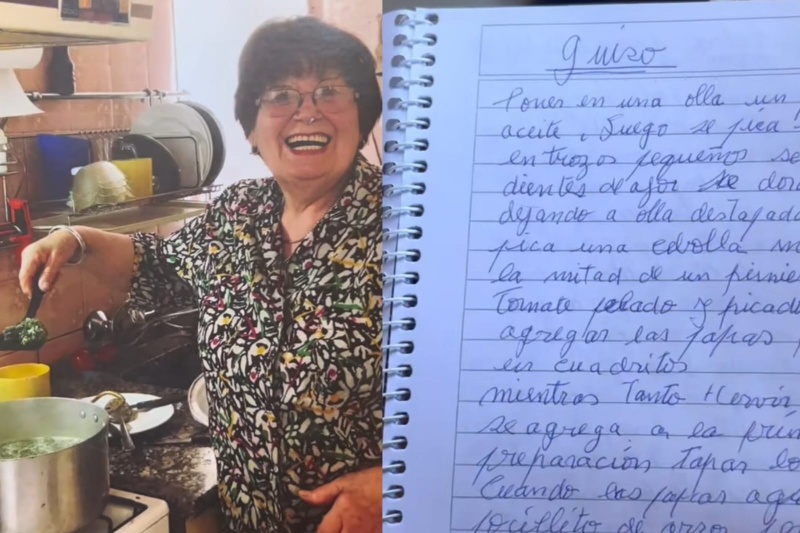 guiso
Poner en una olla un
aceite, Luego se pica
en trozos pequeños
dientes de ajo, se
dejando a olla destapada
pica una cebolla
la mitad de un
Tomate pelado y picad
agregar las papas
en cuadritos
mientras Tanto Hervir
se agrega a la
preparación Tapar
Cuando las papas
de arroz